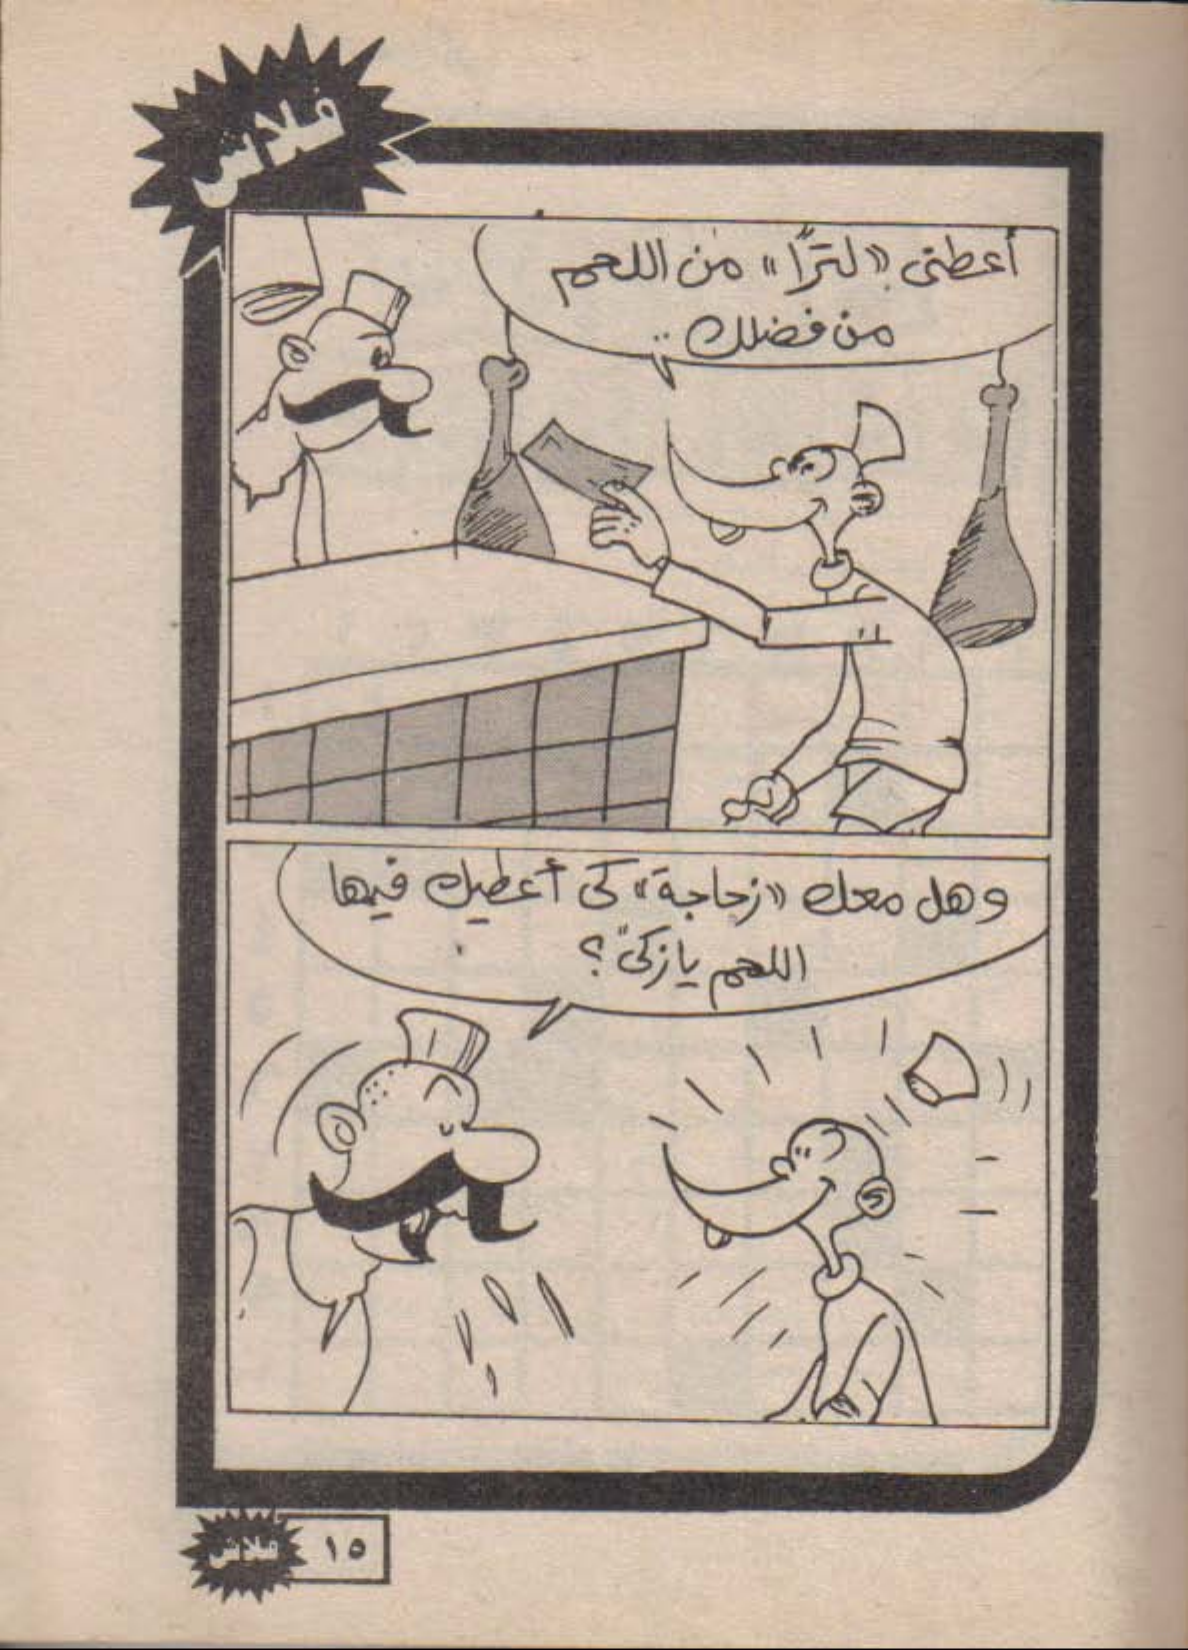 فلاش
أعطنى «لترًا» من اللحم
من فضلك ..
وهل معك «زجاجة» كى أعطيك فيها
اللحم يا زكىّ؟
فلاش ١٥